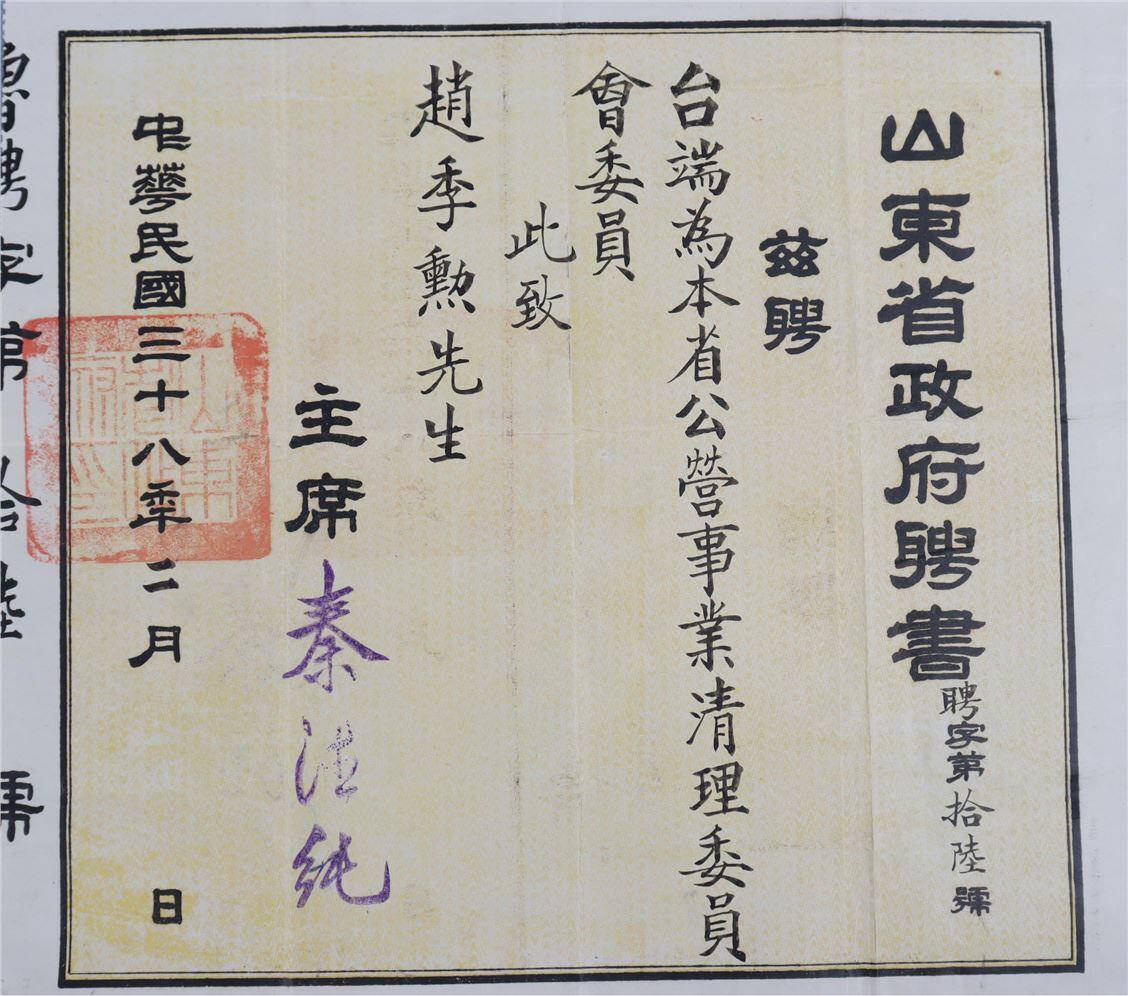 山東省政府聘書
聘字第拾陸號
茲聘
台端為本省公營事業清理委員
會委員
此致
趙季勳先生
主席秦德純
中華民國三十八年二月 日
魯聘字第拾陸號